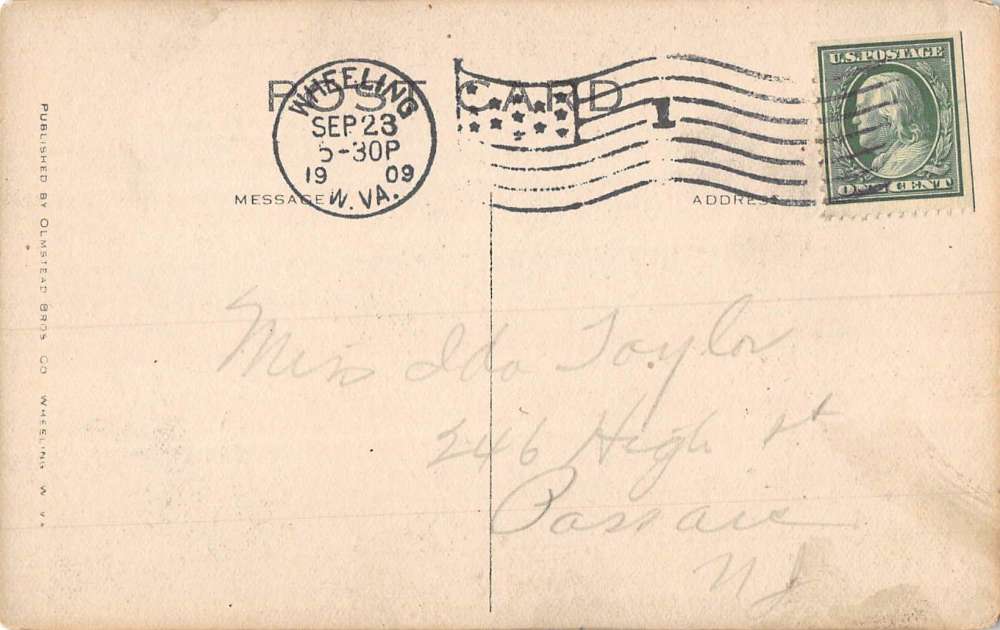 POST CARD
WHEELING
SEP 23
5-30P
19 09
W. VA.
1
U.S. POSTAGE
ONE CENT
MESSAGE
ADDRESS
PUBLISHED BY OLMSTEAD BROS CO WHEELING W VA
Miss Ida Taylor
246 High St
Passaic
NJ